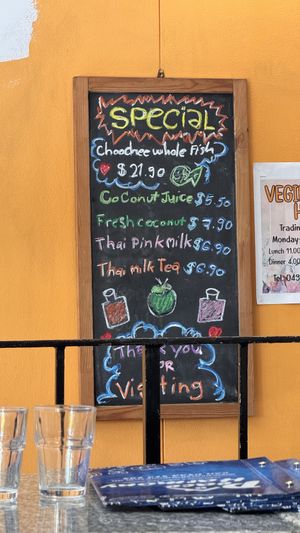 SPECIAL
Choochee whole Fish
$21.90
Coconut Juice $5.50
Fresh coconut $7.90
Thai Pink Milk $6.90
Thai milk Tea $6.90
Thank you
FOR
Visiting
VEGI
Trading
Monday-
Lunch 11.00
Dinner 4.00
Tel:043